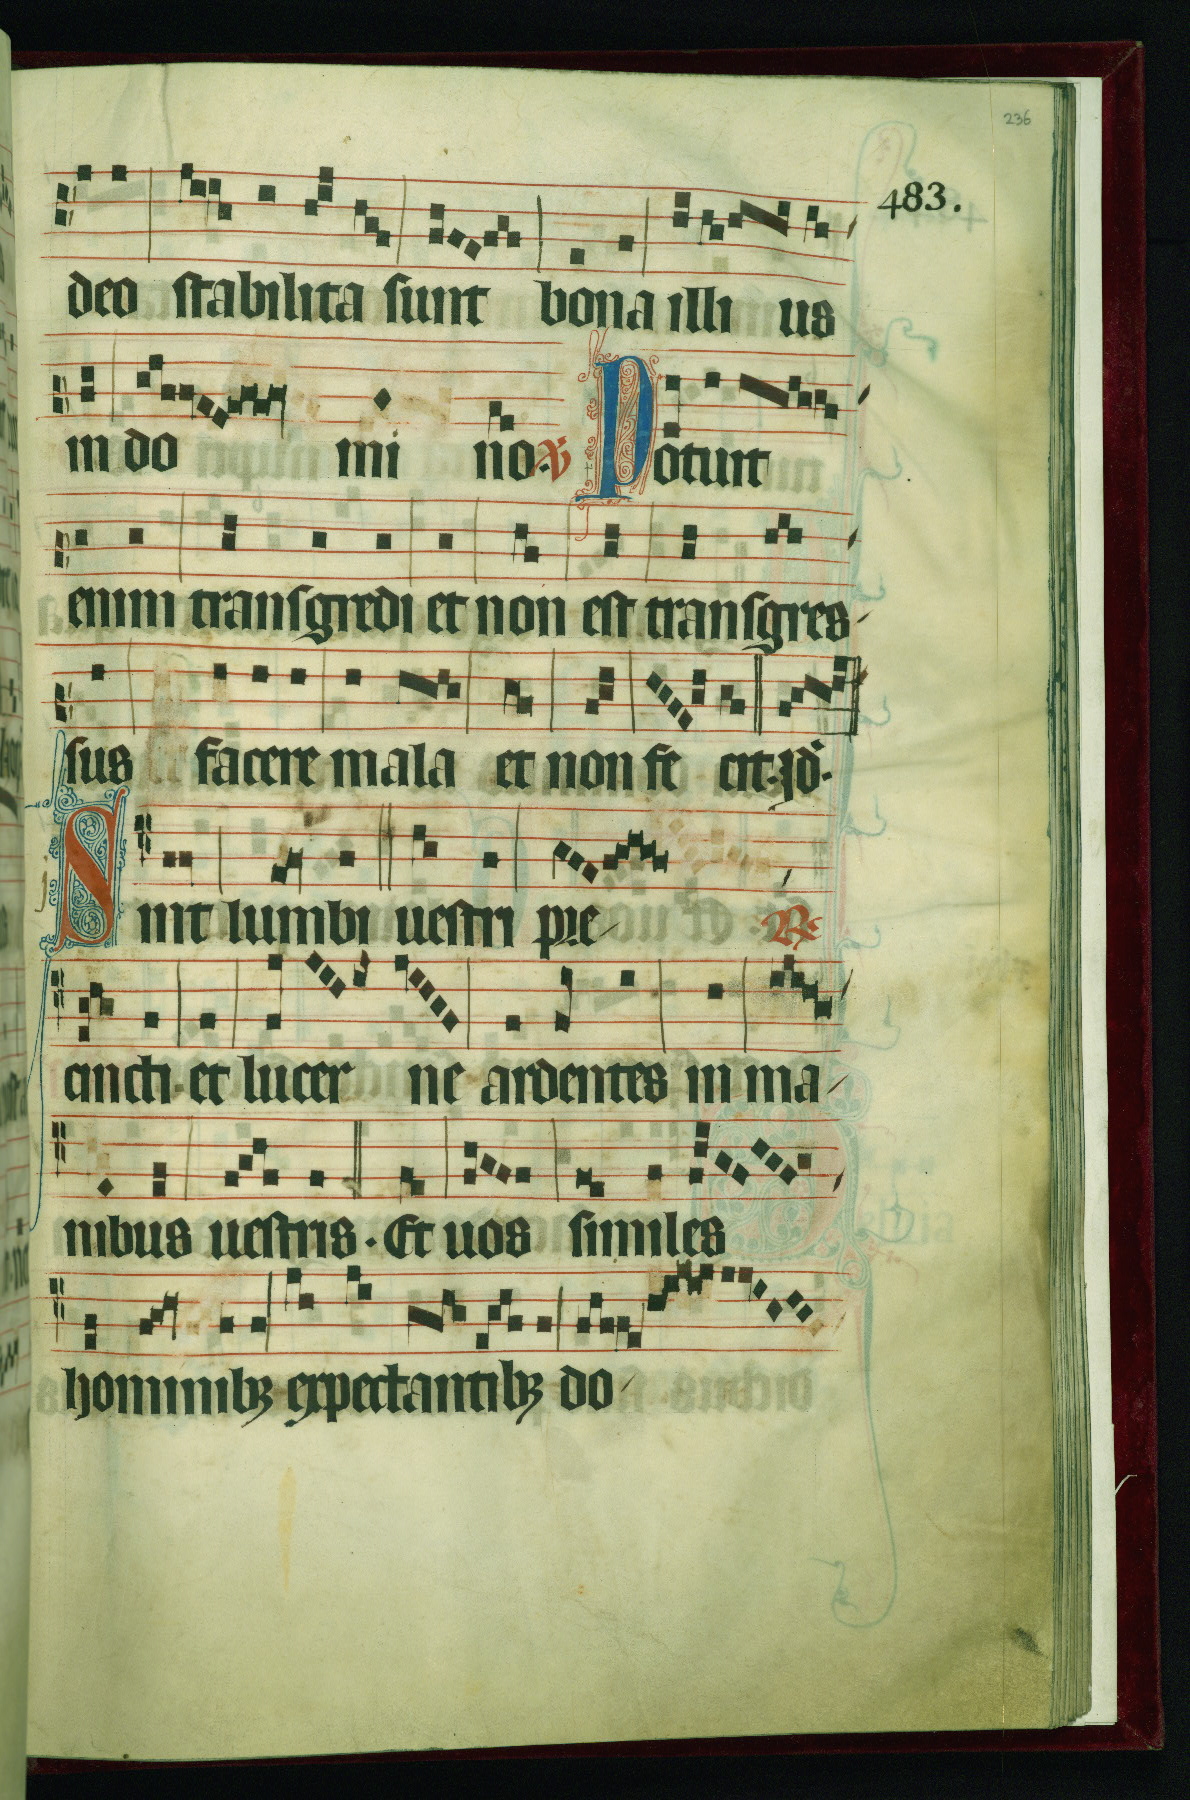 236
483.
deo stabilita sunt bona illi us
in do mi no. ℣ Potuit
enim transgredi et non est transgres
sus facere mala et non fe cit. Id̄.
Sint lumbi uestri pre ℟
cincti. et lucer ne ardentes in ma
nibus uestris. Et uos similes
hominibꝫ expectantibꝫ do